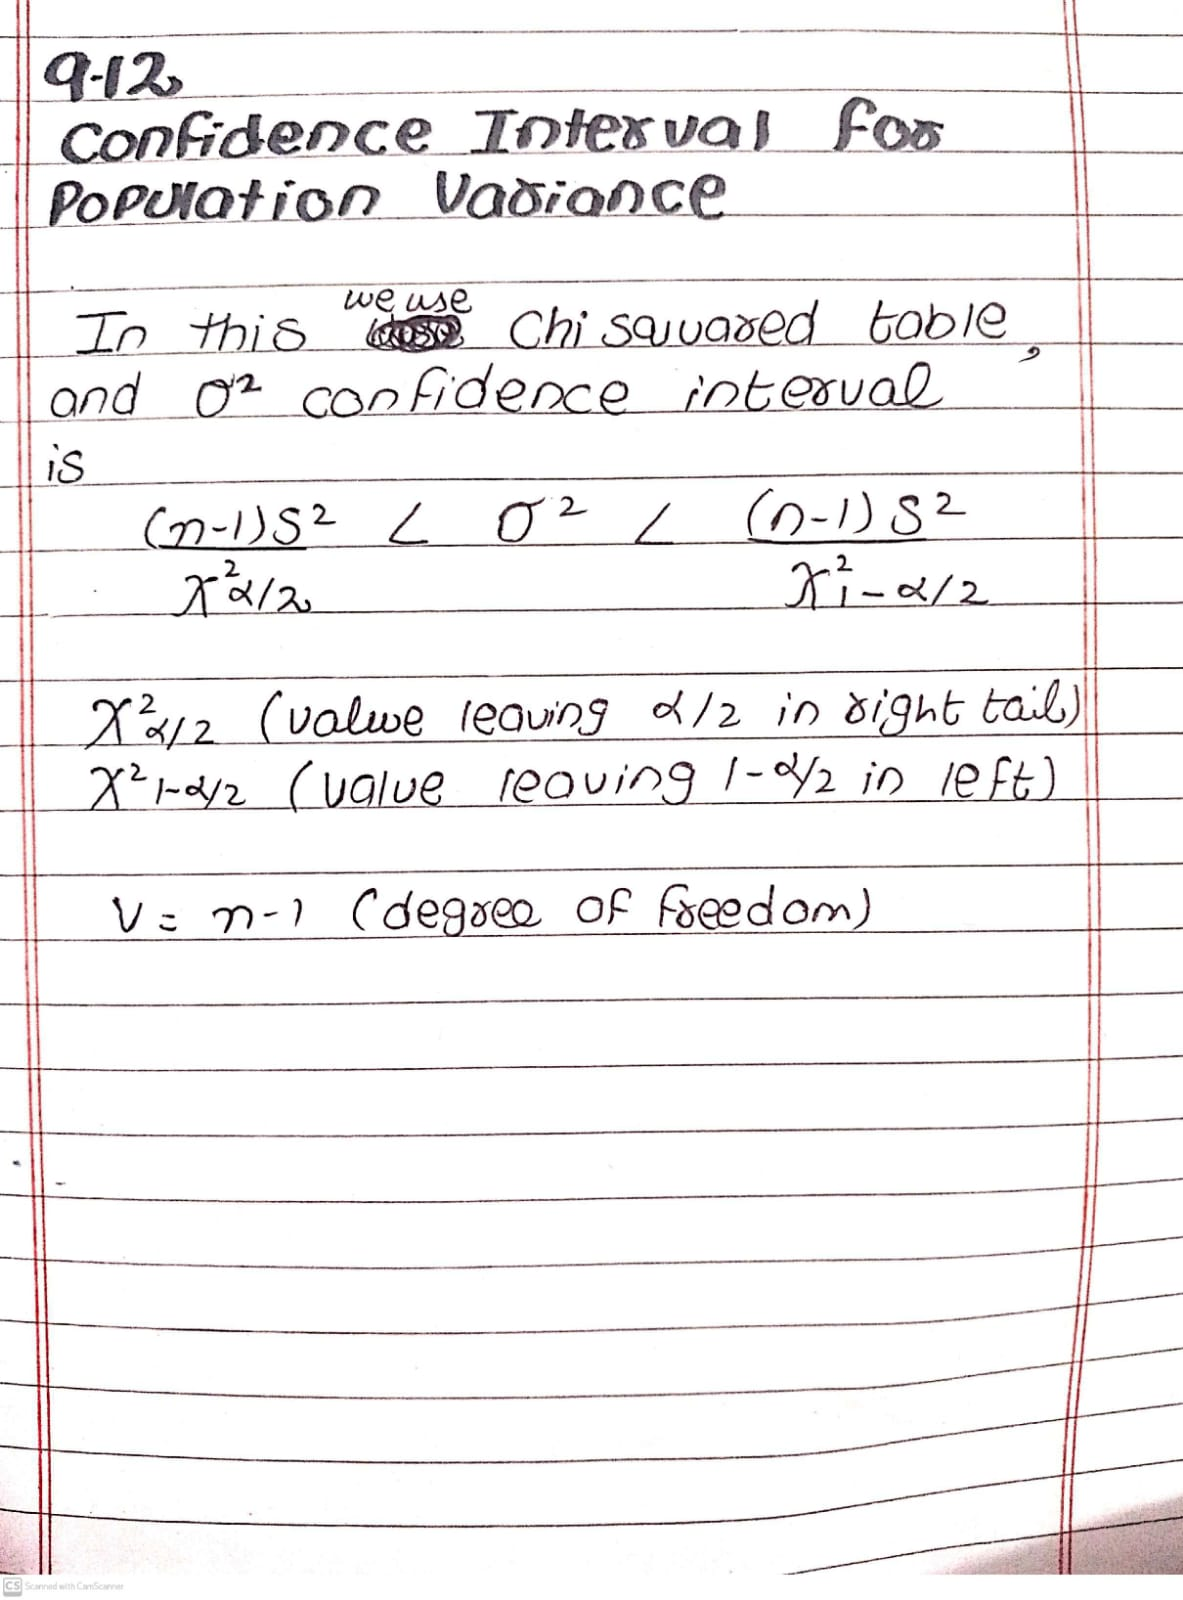 9.12
Confidence Interval for
Population Variance
we use
In this Chi squared table,
and σ² confidence interval
is
(n-1)S² < σ² < (n-1)S²
χ²α/2 χ²1-α/2
χ²α/2 (value leaving α/2 in right tail)
χ²1-α/2 (value leaving 1-α/2 in left)
V = n-1 (degree of freedom)
CS Scanned with CamScanner